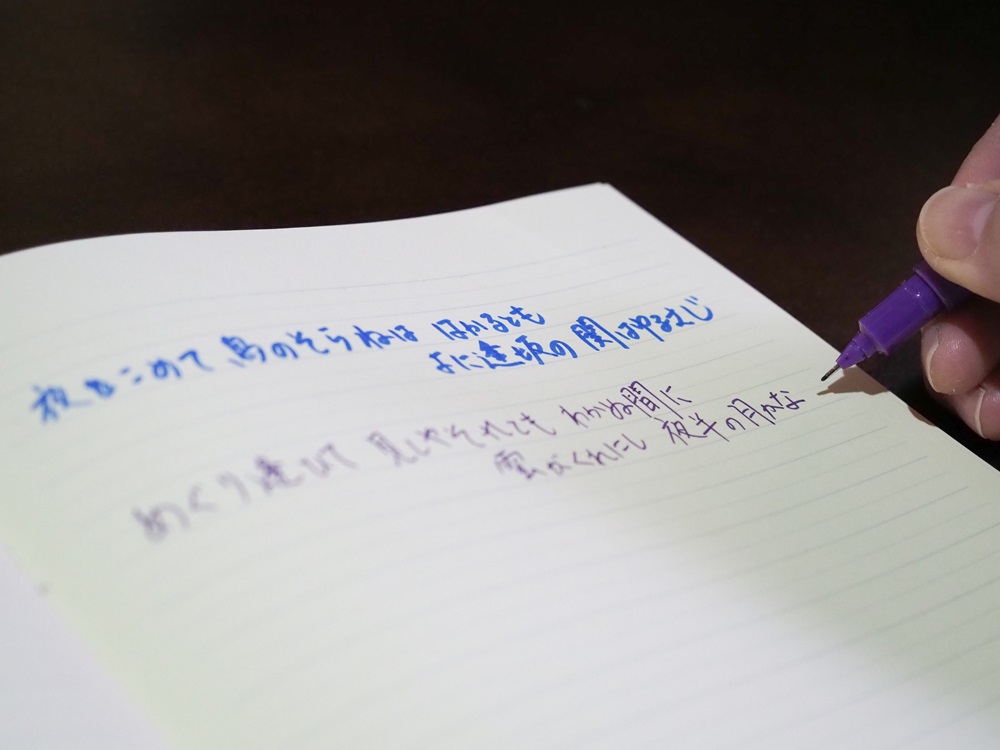 夜をこめて 鳥のそらねは はかるとも
よに逢坂の 関はゆるさじ
めぐり逢ひて 見しやそれとも わかぬ間に
雲がくれにし 夜半の月かな